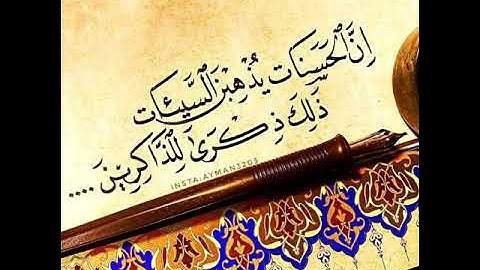 إِنَّ الْحَسَنَاتِ يُذْهِبْنَ السَّيِّئَاتِ
ذَلِكَ ذِكْرَى لِلذَّاكِرِينَ....
INSTA:AYMAN3203